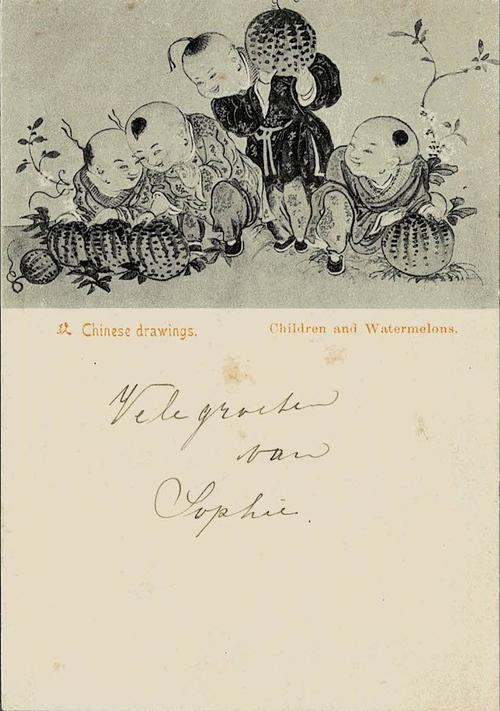 Chinese drawings.
Children and Watermelons.
Vele groeten
van
Sophie.